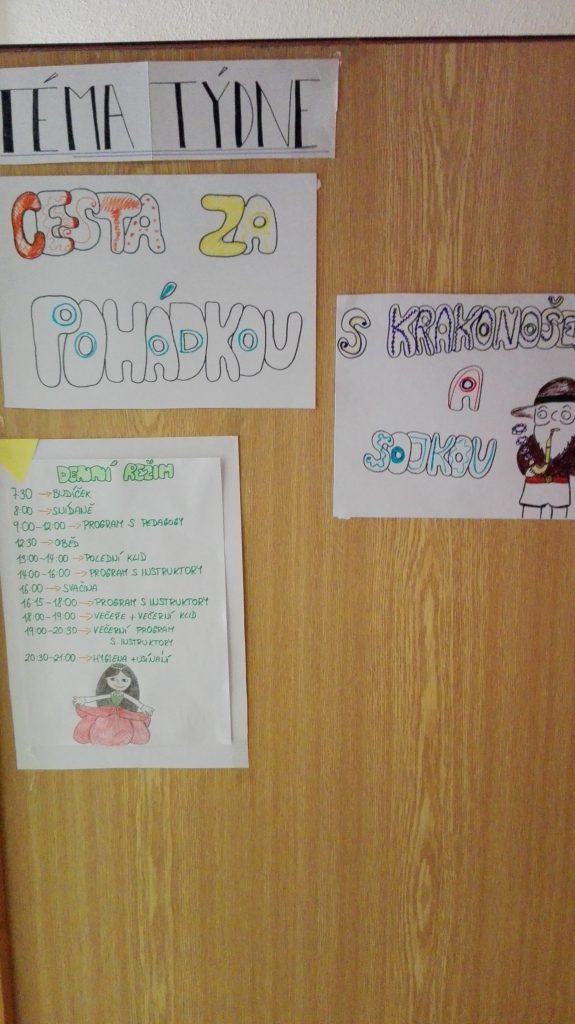 TÉMA TÝDNE
CESTA ZA
POHÁDKOU
S KRAKONOŠE
A
SOJKOU
DENNÍ REŽIM
7:30 → BUDÍČEK
8:00 → SNÍDANĚ
9:00-12:00 → PROGRAM S PEDAGOGY
12:30 → OBĚD
13:00-14:00 → POLEDNÍ KLID
14:00-16:00 → PROGRAM S INSTRUKTORY
16:00 → SVAČINA
16:15-18:00 → PROGRAM S INSTRUKTORY
18:00-19:00 → VEČEŘE + VEČERNÍ KLID
19:00-20:30 → VEČERNÍ PROGRAM
S INSTRUKTORY
20:30-21:00 → HYGIENA + USÍNÁNÍ